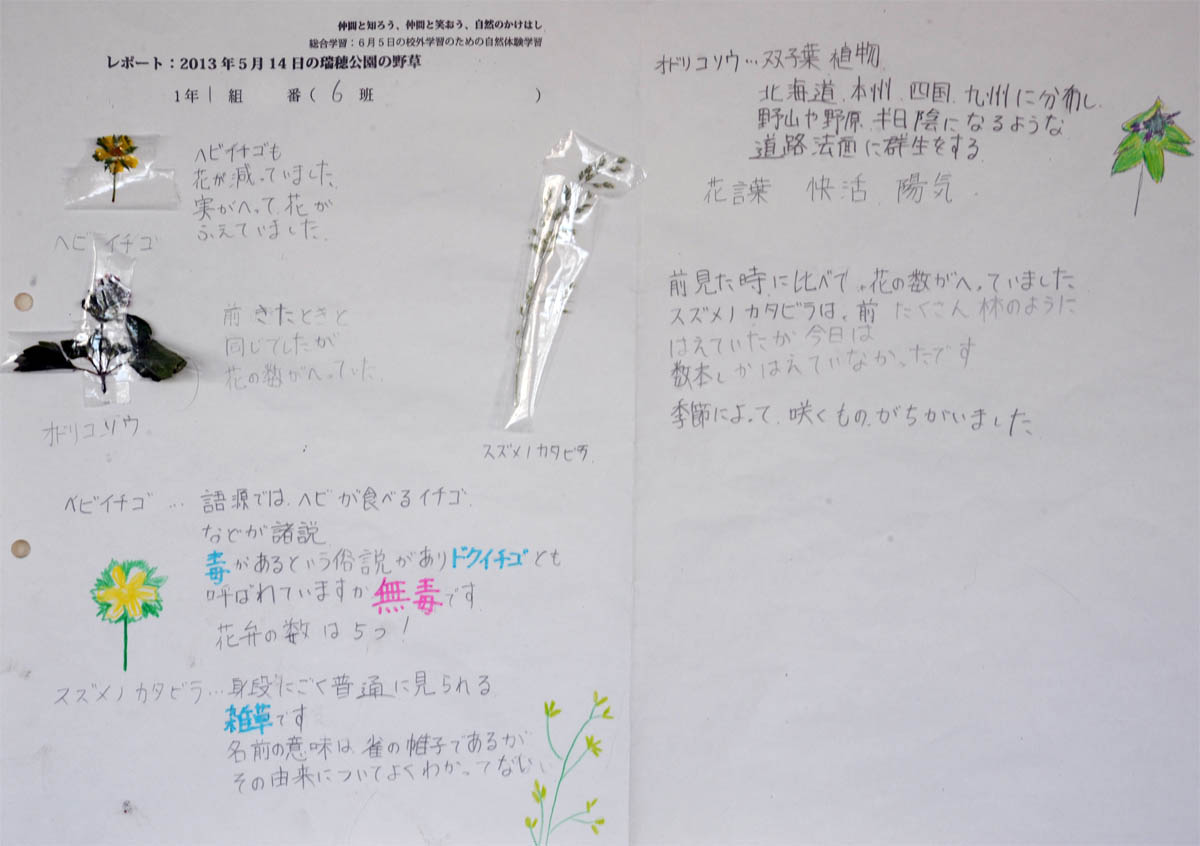 仲間と知ろう、仲間と笑おう、自然のかけはし
総合学習：６月５日の校外学習のための自然体験学習
レポート：2013年５月１４日の瑞穂公園の野草
１年 1 組　　番（ 6 班　　　　　　　　）
ヘビイチゴも
花が減っていました
実がへって、花が
ふえていました。
ヘビイチゴ
前きたときと
同じでしたが
花の数がへっていた。
オドリコソウ
スズメノカタビラ
ヘビイチゴ … 語源では、ヘビが食べるイチゴ
などが諸説
毒があるという俗説がありドクイチゴとも
呼ばれていますが無毒です
花弁の数は5つ！
スズメノカタビラ…身段にごく普通に見られる
雑草です
名前の意味は雀の帷子であるが
その由来についてよくわかってない
オドリコソウ…双子葉植物
北海道、本州、四国、九州に分布し
野山や野原、半日陰になるような
道路法面に群生をする
花言葉　快活　陽気
前見た時に比べて、花の数がへっていました
スズメノカタビラは、前たくさん林のように
はえていたが今日は
数本しかはえていなかったです
季節によって、咲くものがちがいました